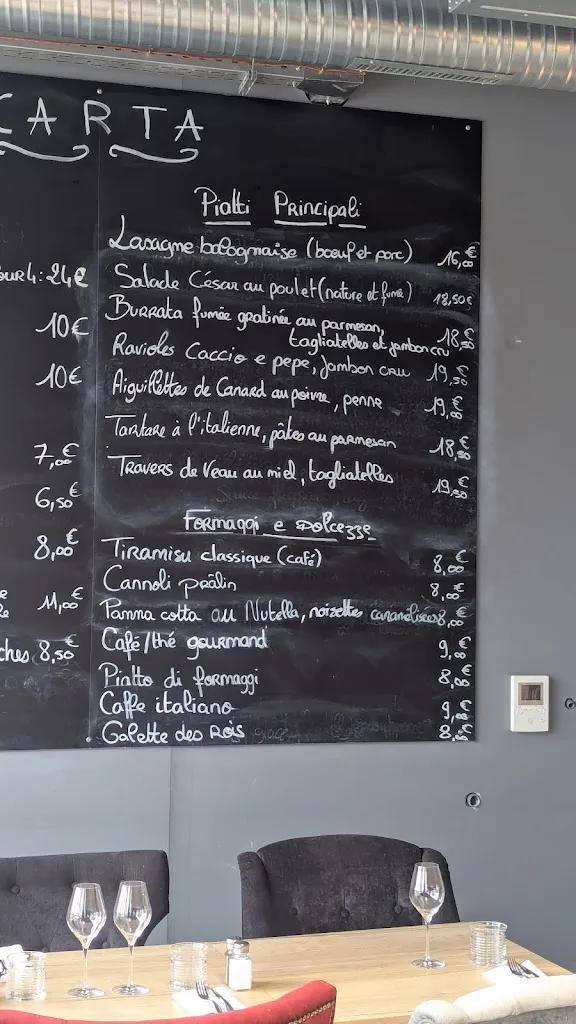 CARTA
our 4: 24€
10€
10€
7,00€
6,50€
8,00€
11,00€
ches 8,50€
Piatti Principali
Lasagne bolognaise (boeuf et porc) 16,00€
Salade César au poulet (nature et fumé) 18,50€
Burrata fumée gratinée au parmesan,
tagliatelles et jambon cru 18,50€
Ravioles Caccio e pepe, jambon cru 19,50€
Aiguillettes de Canard au poivre, penne 19,00€
Tartare à l'italienne, pâtes au parmesan 18,50€
Travers de Veau au miel, tagliatelles 19,50€
Formaggi e Dolcezze
Tiramisu classique (café) 8,00€
Cannoli pralin 8,00€
Panna cotta au Nutella, noisettes caramélisées 8,00€
Café/thé gourmand 9,00€
Piatto di formaggi 8,00€
Caffe italiano 9,00€
Galette des Rois 8,50€